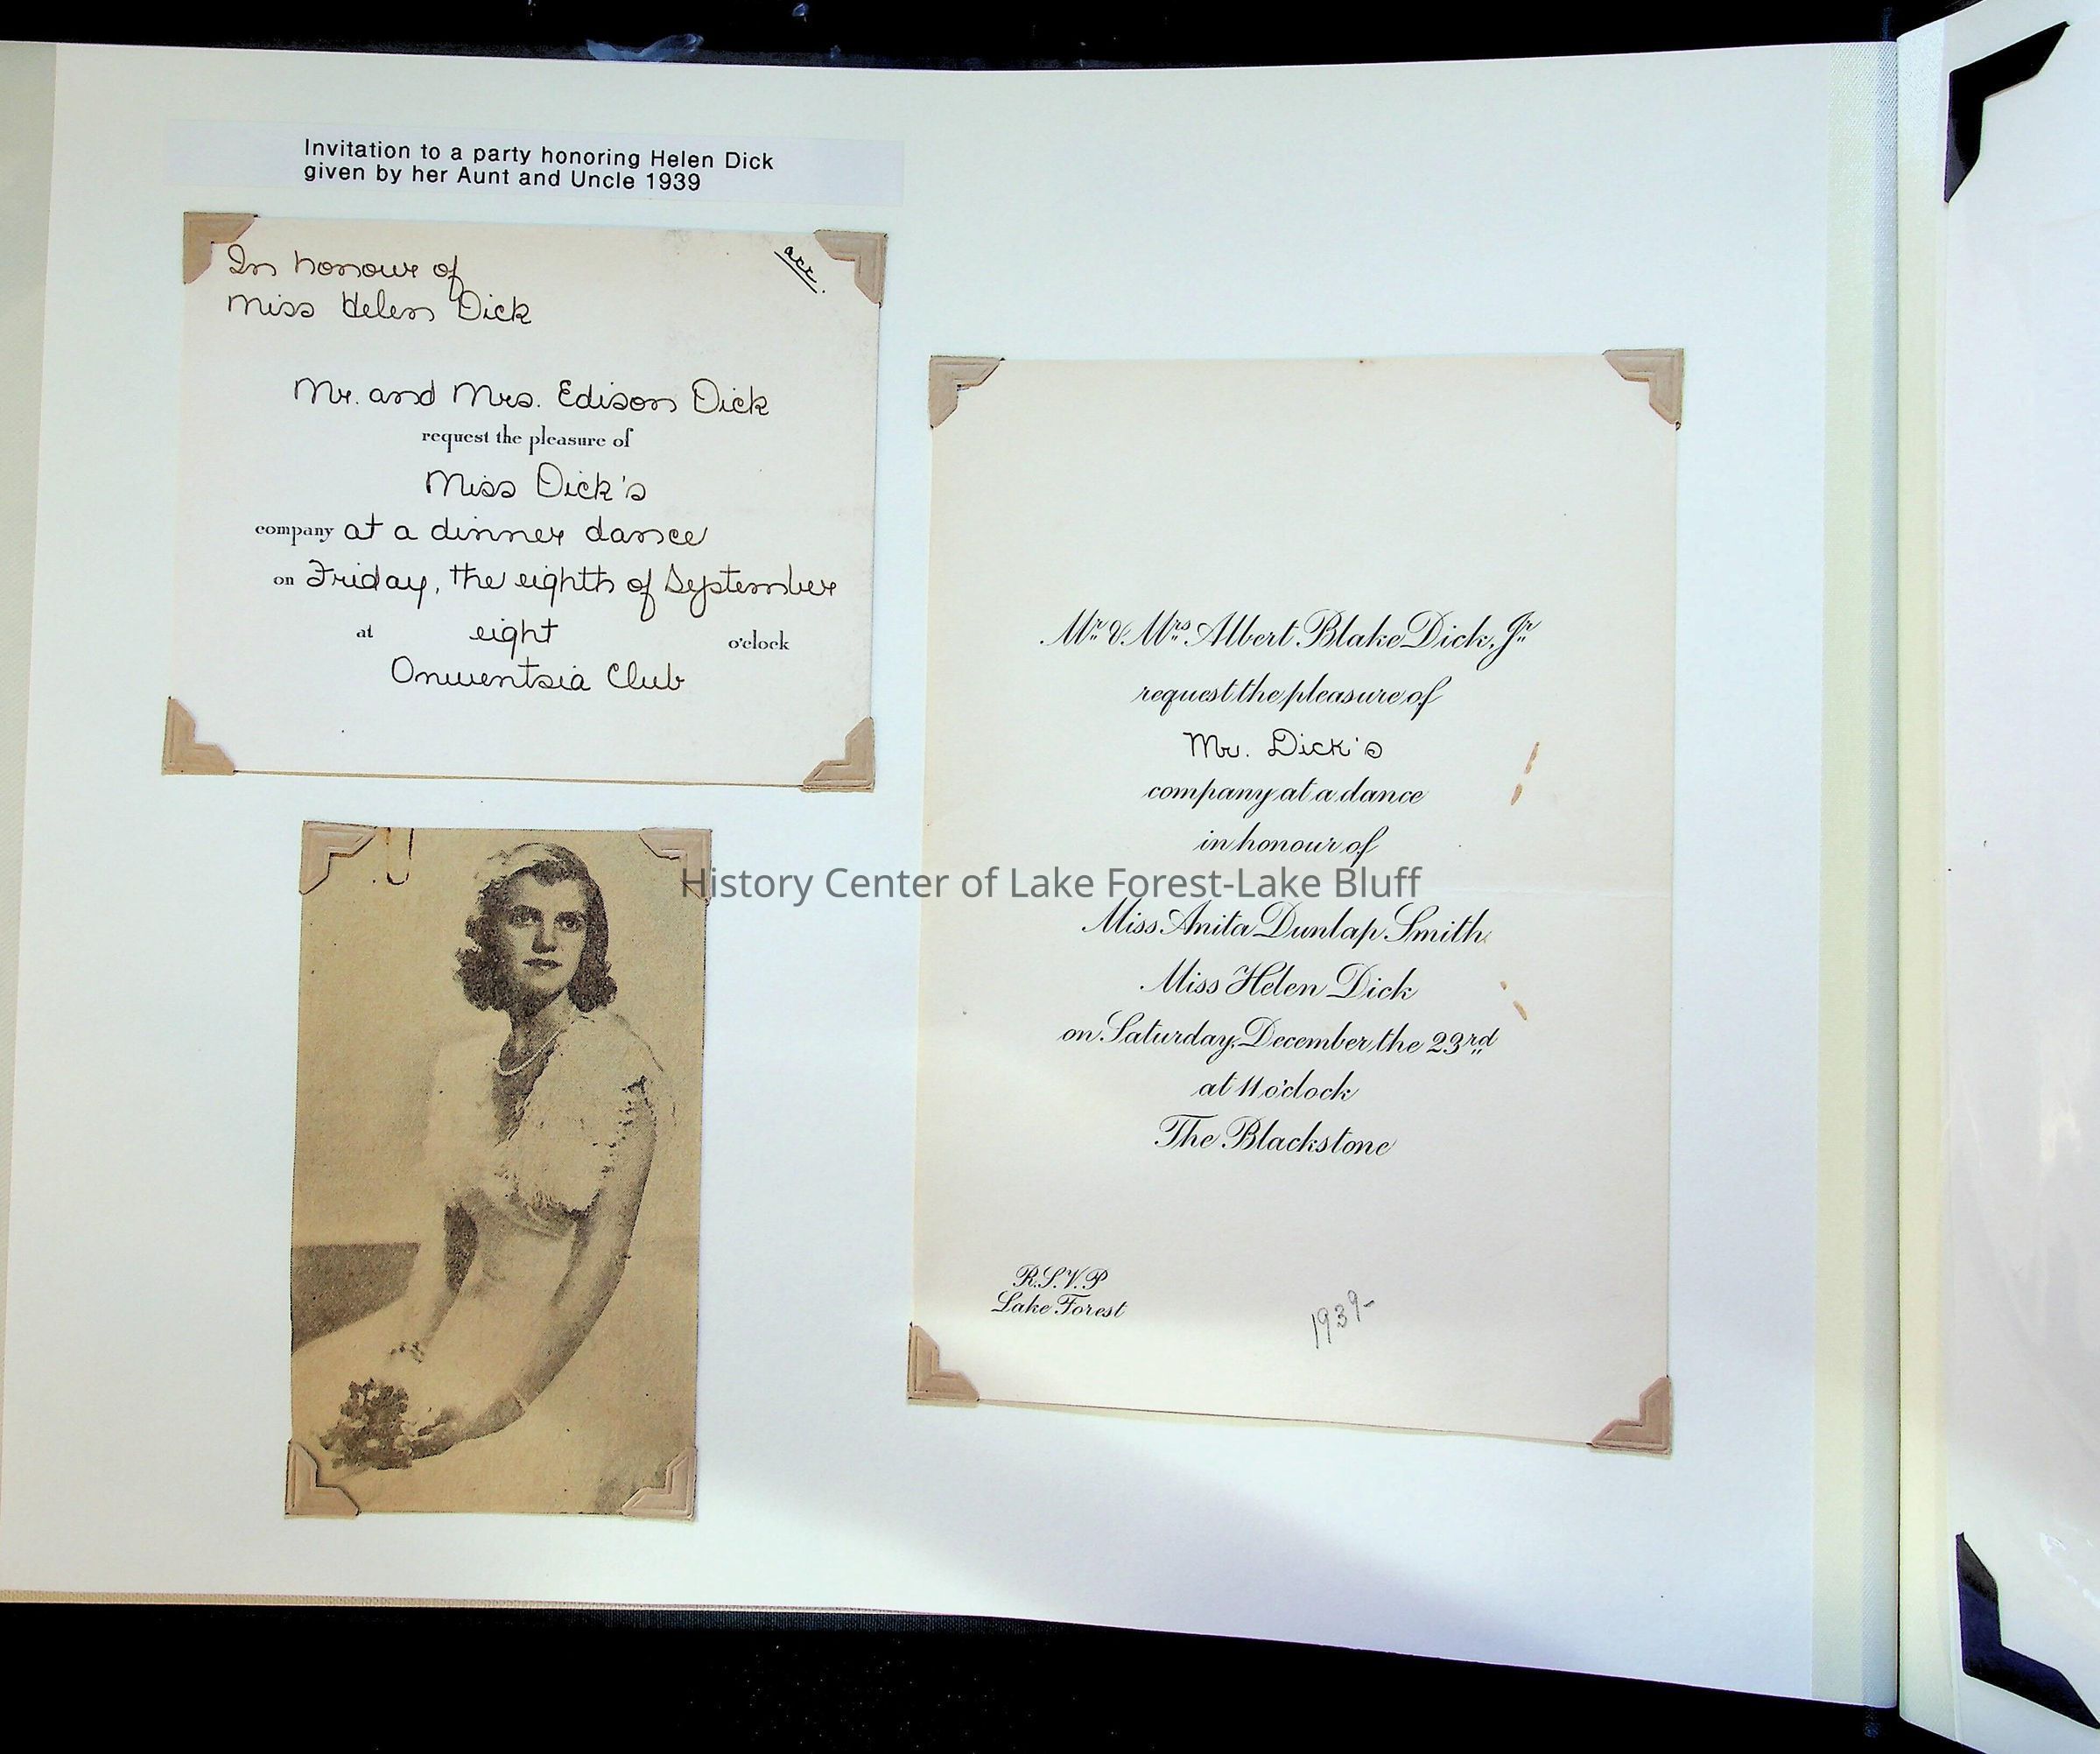 Invitation to a party honoring Helen Dick
given by her Aunt and Uncle 1939
In honour of
Miss Helen Dick
acc.
Mr. and Mrs. Edison Dick
request the pleasure of
Miss Dick's
company at a dinner dance
on Friday, the eighth of September
at eight o'clock
Onwentsia Club
Mr. & Mrs. Albert Blake Dick, Jr.
request the pleasure of
Mr. Dick's
company at a dance
in honour of
History Center of Lake Forest-Lake Bluff
Miss Anita Dunlap Smith
Miss Helen Dick
on Saturday, December the 23rd
at 11 o'clock
The Blackstone
R.S.V.P
Lake Forest
1939-